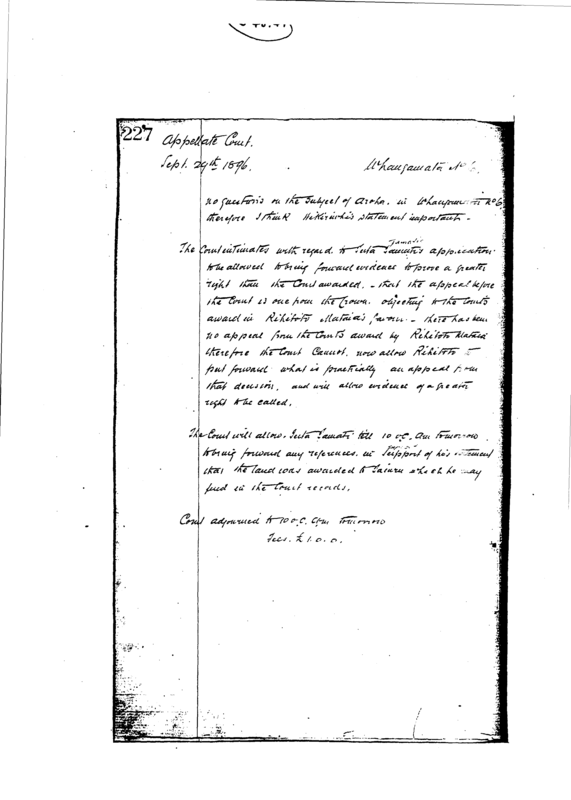 227 Appellate Court.
Sept. 29th 1896. Whangamata No 6.
no questions on the subject of Aroha. in Whangamata No 6
therefore I think statement important -
The Court intimates with regard to Tamati's application
Tamati's
to be allowed to bring forward evidence to prove a greater
right than the Court awarded. - that the appeal before
the Court is one from the Crown. objecting to the Courts
award in Rihitoto Mataia's favour - there has been
no appeal from the Courts award by Rihitoto Mataia
therefore the Court Cannot. now allow Rihitoto to
put forward what is practically an appeal from
that decision. and will allow evidence of a greater
right to be called.
The Court will allow. Tamati till 10 o.c. am tomorrow
to bring forward any references. in support of his statement
that the land was awarded to which he may
find in the Court records.
Court adjourned to 10 o.c. am tomorrow
Fees. £1.0.0.